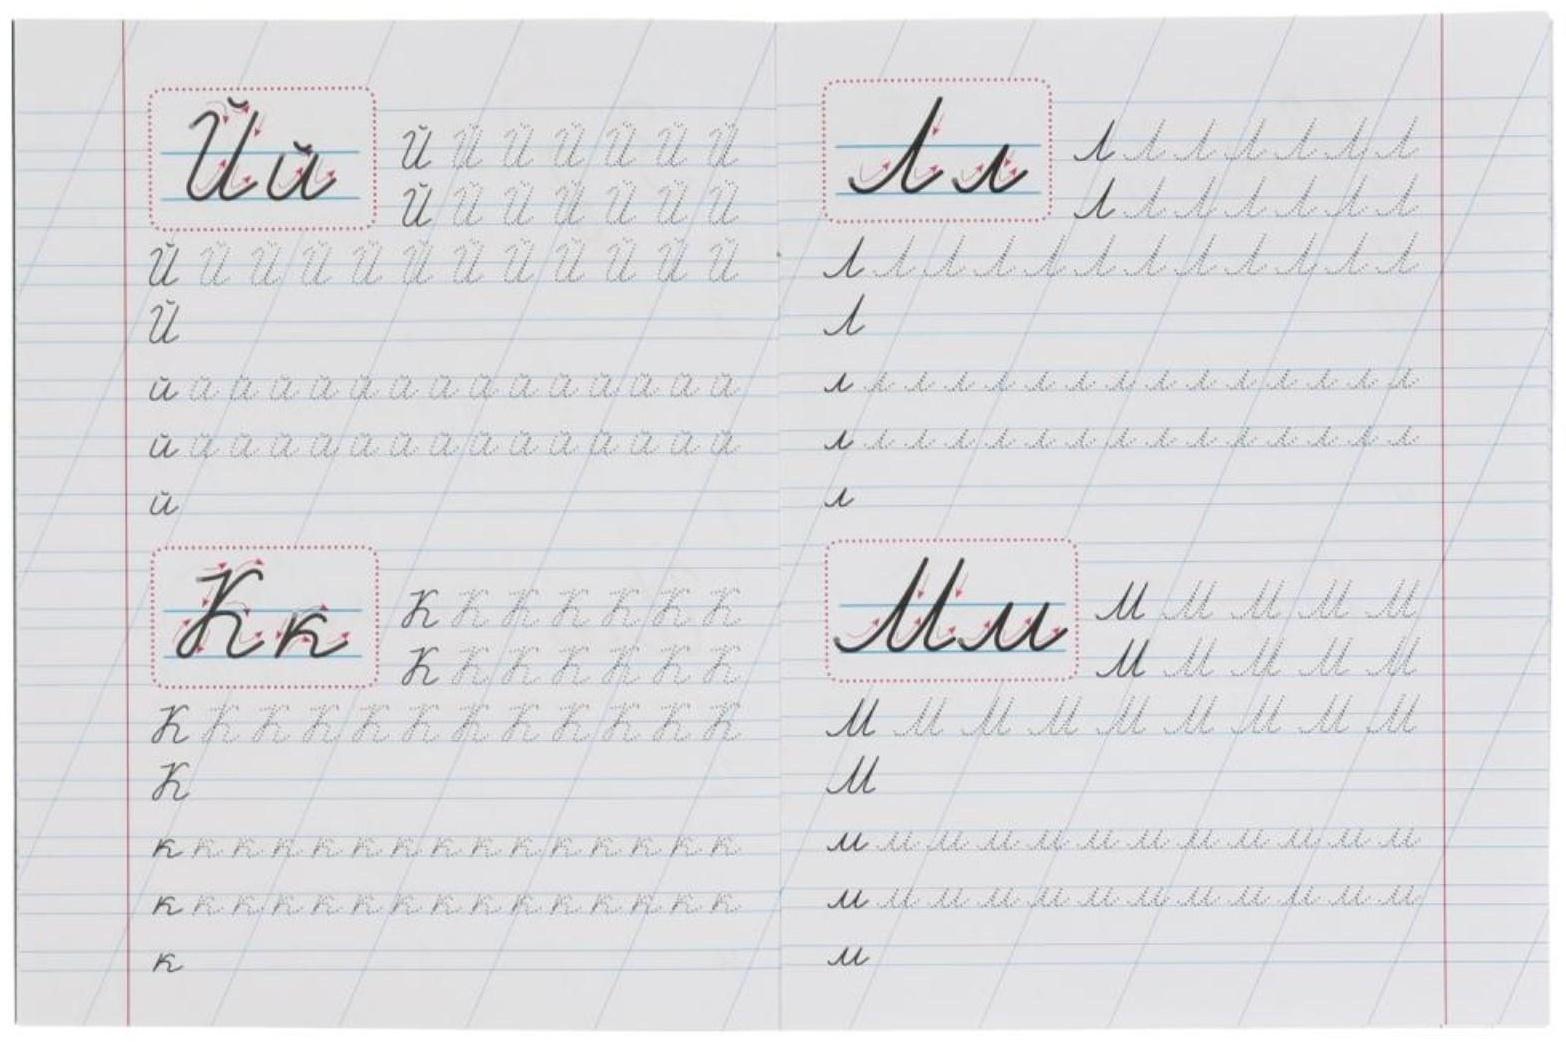 Йй
Й Й Й Й Й Й Й
Й Й Й Й Й Й Й
Й Й Й Й Й Й Й Й Й Й Й Й
Й
й й й й й й й й й й й й й й й
й й й й й й й й й й й й й й й
й
Кк
К К К К К К К
К К К К К К К
К К К К К К К К К К К К
К
к к к к к к к к к к к к к к к
к к к к к к к к к к к к к к к
к
Лл
Л Л Л Л Л Л Л
Л Л Л Л Л Л Л
Л Л Л Л Л Л Л Л Л Л Л Л
Л
л л л л л л л л л л л л л л л
л л л л л л л л л л л л л л л
л
Мм
М М М М М
М М М М М
М М М М М М М М М
М
м м м м м м м м м м м м
м м м м м м м м м м м м
м